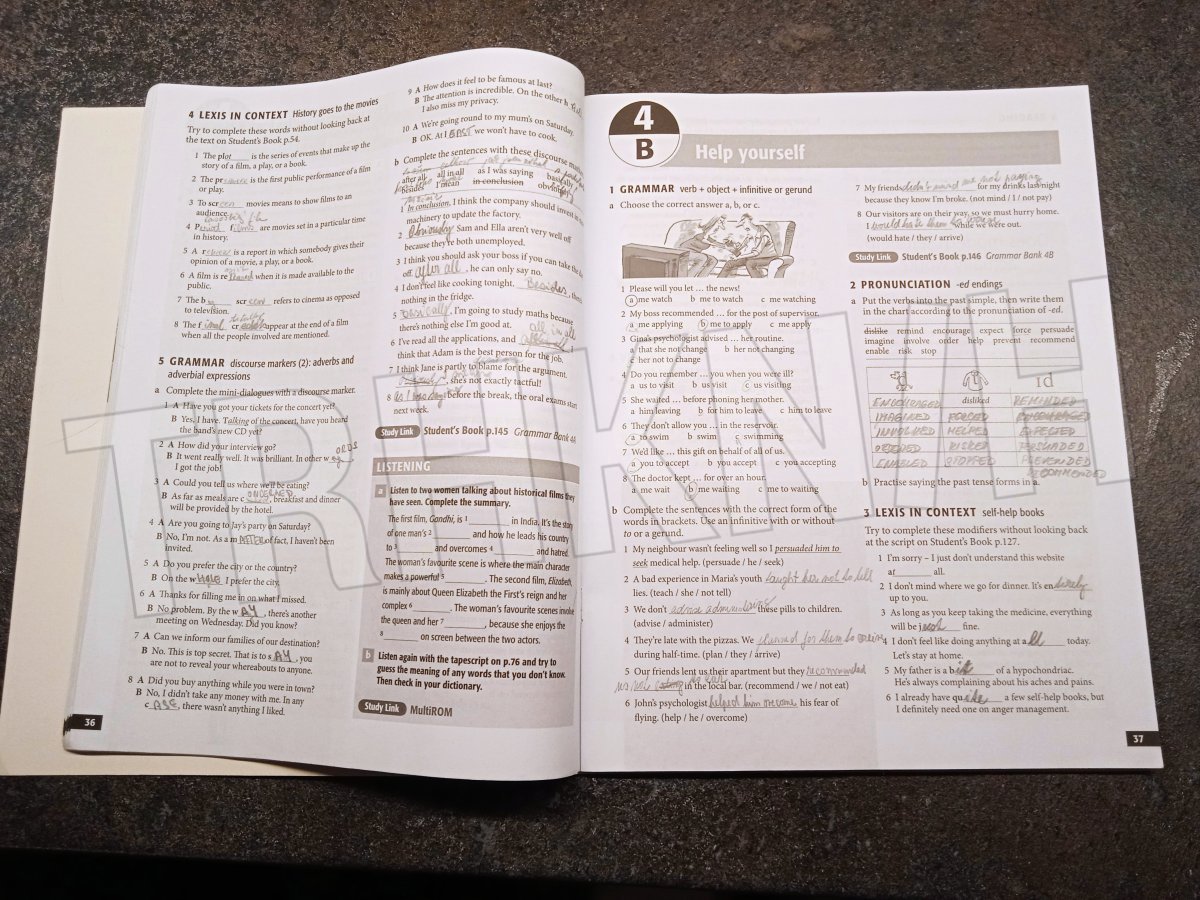 4 LEXIS IN CONTEXT History goes to the movies
Try to complete these words without looking back at
the text on Student's Book p.54.
1 The plot is the series of events that make up the
story of a film, a play, or a book.
2 The pr is the first public performance of a film
or play.
3 To scr movies means to show films to an
audience.
4 Period films are movies set in a particular time
in history.
5 A review is a report in which somebody gives their
opinion of a movie, a play, or a book.
6 A film is re when it is made available to the
public.
7 The b scr refers to cinema as opposed
to television.
8 The f cr appear at the end of a film
when all the people involved are mentioned.
5 GRAMMAR discourse markers (2): adverbs and
adverbial expressions
a Complete the mini-dialogues with a discourse marker.
1 A Have you got your tickets for the concert yet?
B Yes, I have. Talking of the concert, have you heard
the band's new CD yet?
2 A How did your interview go?
B It went really well. It was brilliant. In other w ORDS
I got the job!
3 A Could you tell us where we'll be eating?
B As far as meals are c ONCERNED, breakfast and dinner
will be provided by the hotel.
4 A Are you going to Jay's party on Saturday?
B No, I'm not. As a m of fact, I haven't been
invited.
5 A Do you prefer the city or the country?
B On the w HOLE I prefer the city.
6 A Thanks for filling me in on what I missed.
B No problem. By the w AY, there's another
meeting on Wednesday. Did you know?
7 A Can we inform our families of our destination?
B No. This is top secret. That is to s AY, you
are not to reveal your whereabouts to anyone.
8 A Did you buy anything while you were in town?
B No, I didn't take any money with me. In any
c ASE, there wasn't anything I liked.
36
9 A How does it feel to be famous at last?
B The attention is incredible. On the other h
I also miss my privacy.
10 A We're going round to my mum's on Saturday.
B OK. At l EAST we won't have to cook.
b Complete the sentences with these discourse
after all all in all as I was saying basically
besides I mean in conclusion obviously
1 In conclusion, I think the company should invest in
machinery to update the factory.
2 Obviously Sam and Ella aren't very well off
because they're both unemployed.
3 I think you should ask your boss if you can take the
off. after all, he can only say no.
4 I don't feel like cooking tonight. Besides,
nothing in the fridge.
5 basically, I'm going to study maths because
there's nothing else I'm good at.
6 I've read all the applications, and all in all I
think that Adam is the best person for the job.
7 I think Jane is partly to blame for the argument.
, she's not exactly tactful!
8 as I was saying before the break, the oral exams start
next week.
Study Link Student's Book p.145 Grammar Bank 4A
LISTENING
a Listen to two women talking about historical films they
have seen. Complete the summary.
The first film, Gandhi, is 1 in India. It's the story
of one man's 2 and how he leads his country
to 3 and overcomes 4 and hatred.
The woman's favourite scene is where the main character
makes a powerful 5. The second film, Elizabeth,
is mainly about Queen Elizabeth the First's reign and her
complex 6. The woman's favourite scenes involve
the queen and her 7, because she enjoys the
8 on screen between the two actors.
b Listen again with the tapescript on p.76 and try to
guess the meaning of any words that you don't know.
Then check in your dictionary.
Study Link MultiROM
4
B
Help yourself
1 GRAMMAR verb + object + infinitive or gerund
a Choose the correct answer a, b, or c.
1 Please will you let … the news!
a me watch b me to watch c me watching
2 My boss recommended … for the post of supervisor.
a me applying b me to apply c me apply
3 Gina's psychologist advised … her routine.
a that she not change b her not changing
c her not to change
4 Do you remember … you when you were ill?
a us to visit b us visit c us visiting
5 She waited … before phoning her mother.
a him leaving b for him to leave c him to leave
6 They don't allow you … in the reservoir.
a to swim b swim c swimming
7 We'd like … this gift on behalf of all of us.
a you to accept b you accept c you accepting
8 The doctor kept … for over an hour.
a me wait b me waiting c me to waiting
b Complete the sentences with the correct form of the
words in brackets. Use an infinitive with or without
to or a gerund.
1 My neighbour wasn't feeling well so I persuaded him to
seek medical help. (persuade / he / seek)
2 A bad experience in Maria's youth taught her not to tell
lies. (teach / she / not tell)
3 We don't advise administering these pills to children.
(advise / administer)
4 They're late with the pizzas. We planned for them to arrive
during half-time. (plan / they / arrive)
5 Our friends lent us their apartment but they recommended
in the local bar. (recommend / we / not eat)
6 John's psychologist helped him overcome his fear of
flying. (help / he / overcome)
7 My friends didn't mind me not paying for my drinks last night
because they know I'm broke. (not mind / I / not pay)
8 Our visitors are on their way, so we must hurry home.
I would hate them to arrive while we were out.
(would hate / they / arrive)
Study Link Student's Book p.146 Grammar Bank 4B
2 PRONUNCIATION -ed endings
a Put the verbs into the past simple, then write them
in the chart according to the pronunciation of -ed.
dislike remind encourage expect force persuade
imagine involve order help prevent recommend
enable risk stop
ɪd
ENCOURAGED disliked REMINDED
IMAGINED FORCED
INVOLVED HELPED EXPECTED
ORDERED RISKED PERSUADED
ENABLED STOPPED PREVENTED
RECOMMENDED
b Practise saying the past tense forms in a.
3 LEXIS IN CONTEXT self-help books
Try to complete these modifiers without looking back
at the script on Student's Book p.127.
1 I'm sorry – I just don't understand this website
at all.
2 I don't mind where we go for dinner. It's entirely
up to you.
3 As long as you keep taking the medicine, everything
will be j fine.
4 I don't feel like doing anything at all today.
Let's stay at home.
5 My father is a bit of a hypochondriac.
He's always complaining about his aches and pains.
6 I already have quite a few self-help books, but
I definitely need one on anger management.
37